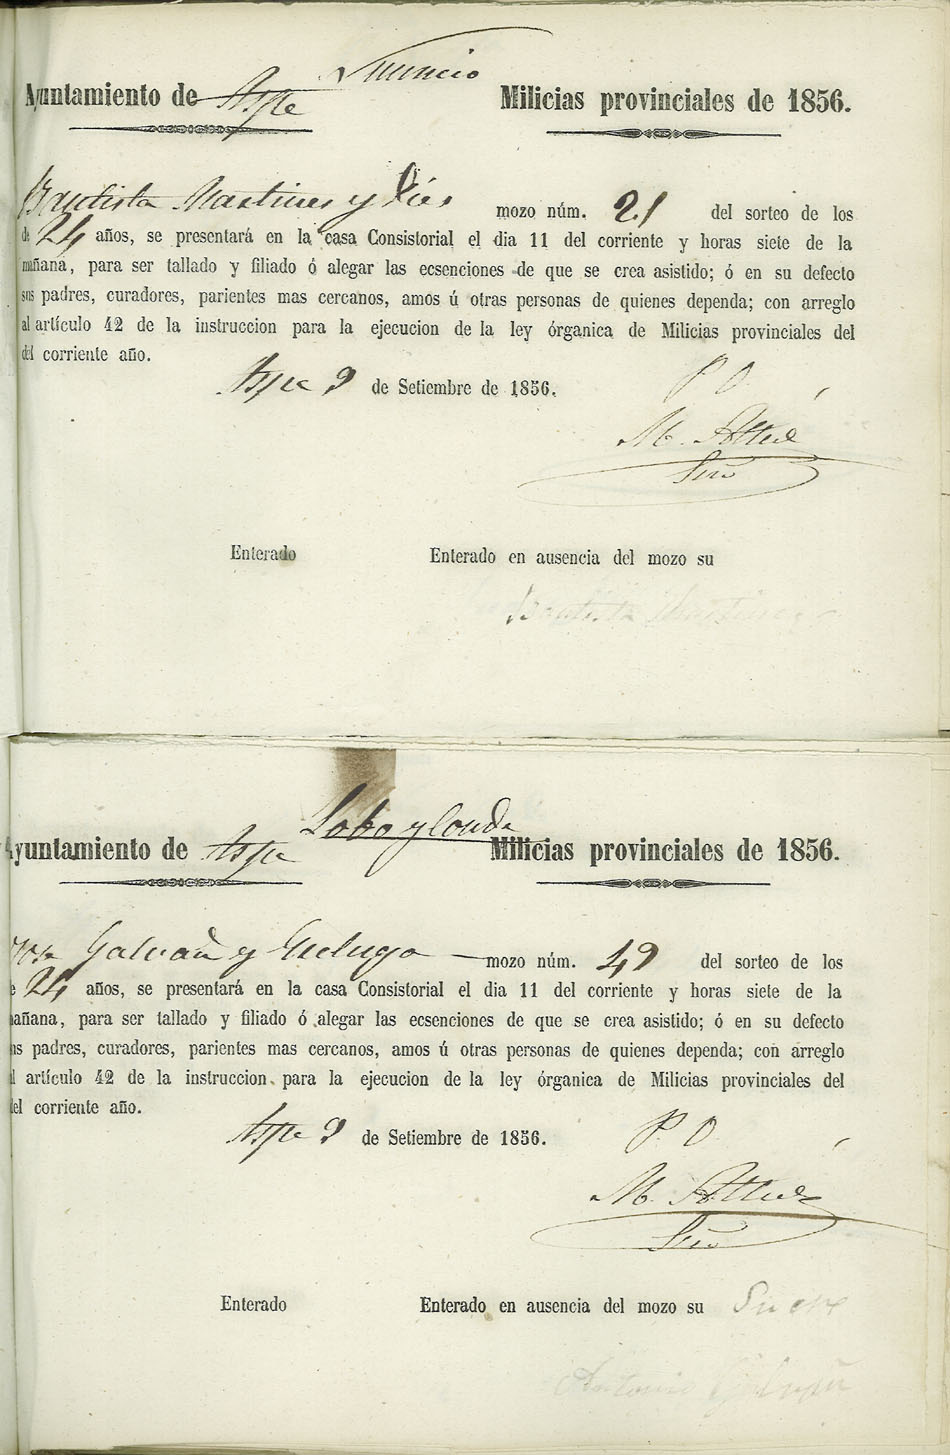 Ayuntamiento de Aspe
Milicias provinciales de 1856.
Bautista Martines y Dies mozo núm. 21 del sorteo de los
de 24 años, se presentará en la casa Consistorial el dia 11 del corriente y horas siete de la
mañana, para ser tallado y filiado ó alegar las ecsenciones de que se crea asistido; ó en su defecto
sus padres, curadores, parientes mas cercanos, amos ú otras personas de quienes dependa; con arreglo
al artículo 42 de la instruccion para la ejecucion de la ley órganica de Milicias provinciales del
del corriente año.
Aspe 9 de Setiembre de 1856.
P. O.
M.
Srio
Enterado
Enterado en ausencia del mozo su
Bautista Martines
Lobo y Conde
Ayuntamiento de Aspe
Milicias provinciales de 1856.
Galvañ y mozo núm. 49 del sorteo de los
e 24 años, se presentará en la casa Consistorial el dia 11 del corriente y horas siete de la
mañana, para ser tallado y filiado ó alegar las ecsenciones de que se crea asistido; ó en su defecto
us padres, curadores, parientes mas cercanos, amos ú otras personas de quienes dependa; con arreglo
l artículo 42 de la instruccion para la ejecucion de la ley órganica de Milicias provinciales del
del corriente año.
Aspe 9 de Setiembre de 1856.
P. O.
M.
Srio
Enterado
Enterado en ausencia del mozo su
Antonio